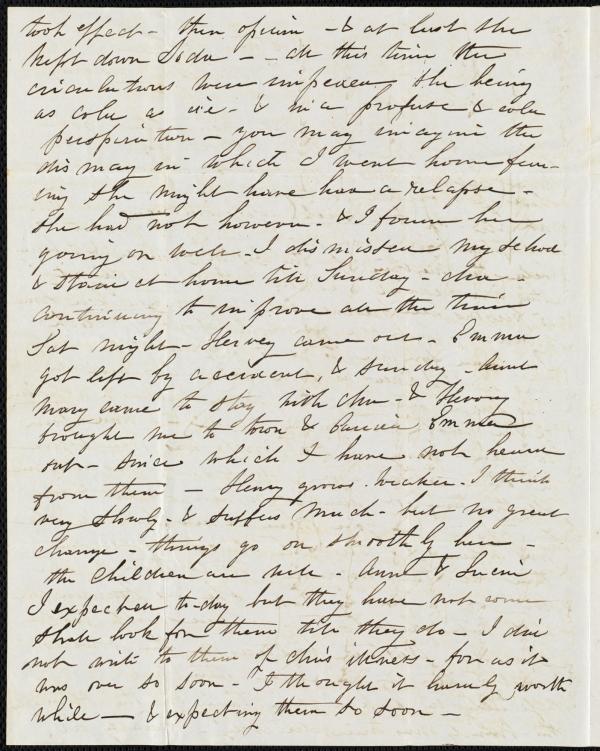 took effect - then opium - & at last she
kept down Soda - - all this time the
circulations were impeded she being
as cold as ice - & in a profuse & cold
perspiration - you may imagine the
dismay in which I went home fear-
ing she might have had a relapse -
she had not however - & I found her
going on well - I dismissed my school
& staid at home till Sunday - cha -
continuing to improve all the time
Sat night - Hervey came out - Emma
got left by accident, & Sunday - Aunt
Mary came to stay with cha - & Hervey
brought me to town & carried Emma
out - since which I have not heard
from them - Henry grows weaker - I think
very slowly - & suffers much - but no great
change - things go on smoothly here -
the children are well - Anne & Lucia
I expected to-day but they have not come
shall look for them till they do - I did
not write to them of cha's illness - for as it
was over so soon - I thought it hardly worth
while - & expecting them so soon -